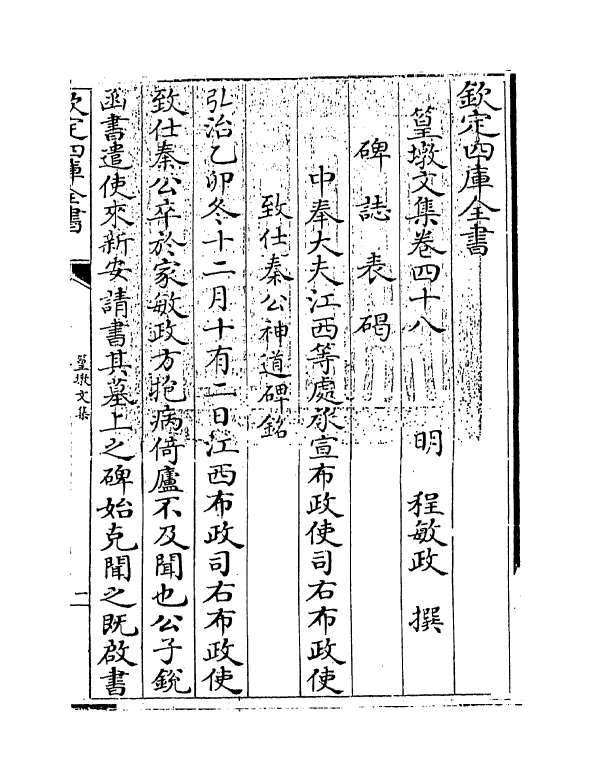 欽定四庫全書
篁墩文集卷四十八　明　程敏政　撰
碑誌表碣
中奉大夫江西等處承宣布政使司右布政使
致仕秦公神道碑銘
弘治乙卯冬十二月十有二日江西布政司右布政使
致仕秦公卒於家敏政方抱病倚廬不及聞也公子銳
函書遣使來新安請書其墓上之碑始克聞之既啟書
欽定四庫全書
篁墩文集
二